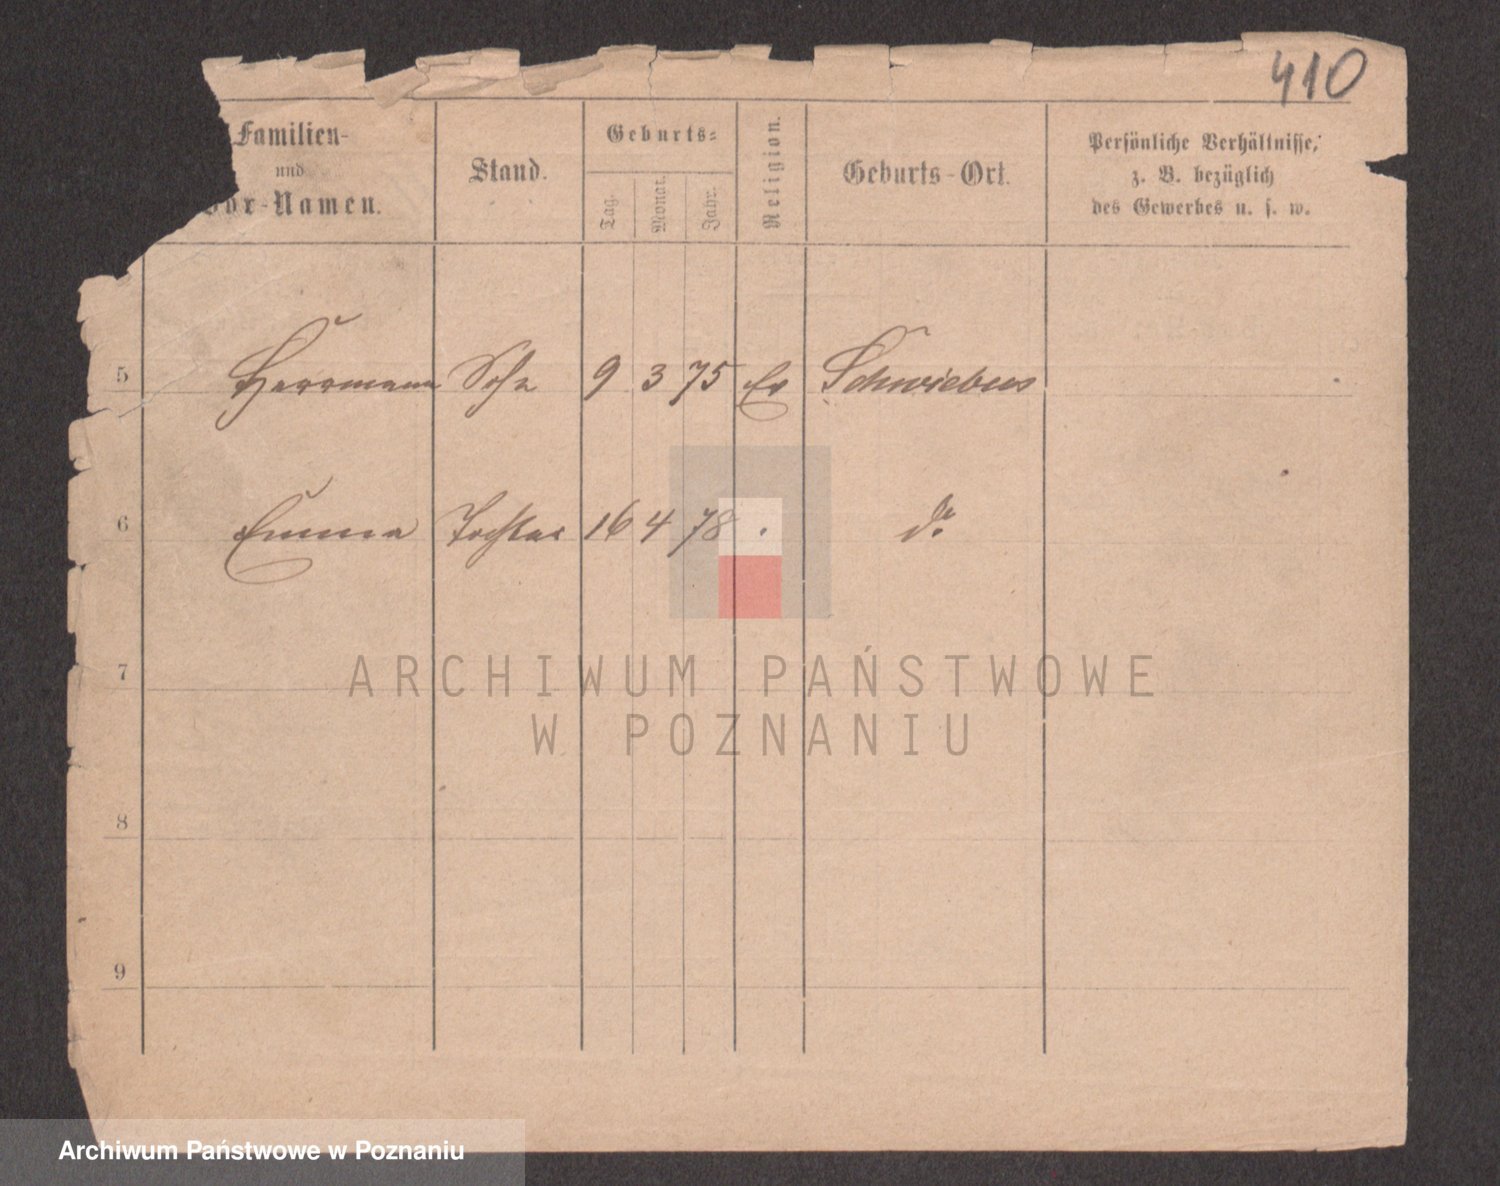 410
Familien-
und
Vor-Namen.
Stand.
Geburts=
Tag.
Monat.
Jahr.
Religion.
Geburts-Ort.
Persönliche Verhältnisse,
z. B. bezüglich
des Gewerbes u. s. w.
5 Herrmann Sohn 9 3 75 Ev Schwiebus
6 Emma Tochter 16 4 78 . do
7
8
9
ARCHIWUM PAŃSTWOWE
W POZNANIU
Archiwum Państwowe w Poznaniu